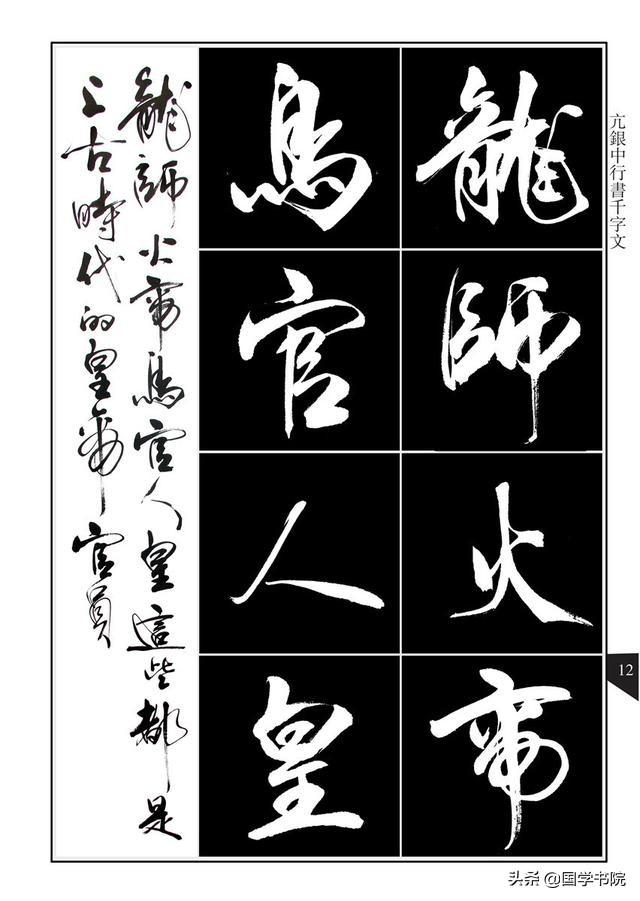 亢銀中行書千字文
龍師火帝
鳥官人皇
龍師火帝鳥官人皇這些都是
上古時代的皇帝官員
12
头条 @国学书院